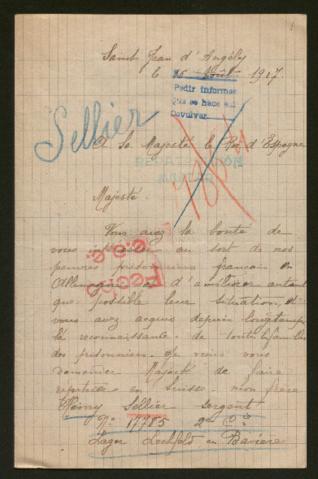 Saint Jean d'Angély
le 16 Août 1917
Pedir informes
que se hace así
Devolver
Sellier
A Sa Majesté le Roi d'Espagne
Majesté
Vous avez la bonté de
vous au sort de nos
pauvres prisonniers français en
Allemagne et d'améliorer autant
que possible leur situation, et
vous avez acquis depuis longtemps
la reconnaissance de toute familles
des prisonniers. Je viens vous
demander Majesté de faire
rapatrier en Suisse mon frère
Rémy Sellier sergent
No 17785 2e Cie
Lager Lechfeld en Bavière